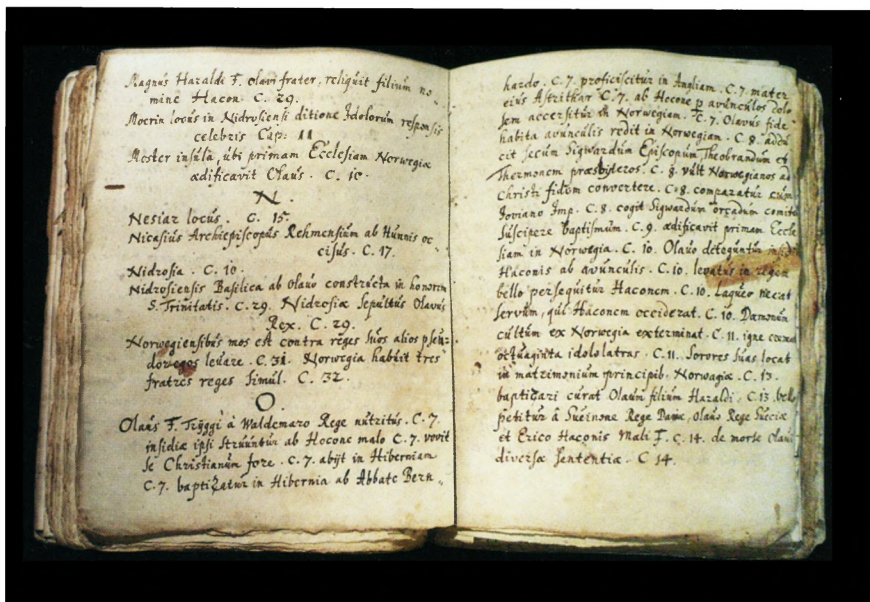 Magnus Haraldi F. olavi frater, reliquit filium no„
mine Hacon. C. 29.
Moerin locus in Nidrosiensi ditione Idolorum responsis
celebris Cap: 11
Moster insula, ubi primam Ecclesiam Norwegiæ
ædificavit Olaus. C. 10.
N.
Nesiar locus. C. 15.
Nicasius Archiepiscopus Rehmensium ab Hunnis oc„
cisus. C. 17.
Nidrosia. C. 10.
Nidrosiensis Basilica ab olavo constructa in honorem
S. Trinitatis. C. 29. Nidrosiæ sepultus Olavus
Rex. C. 29.
Norwegiensibus mos est contra reges suos alios pseu„
doreges levare. C. 31. Norwegia habuit tres
fratres reges simul. C. 32.
O.
Olaus F. Tryggi à Waldemaro Rege nutritus. C. 7.
insidiæ ipsi struuntur ab Hocone malo C. 7. vovit
se Christianum fore. C. 7. abijt in Hiberniam
C. 7. baptizatur in Hibernia ab Abbate Bern„
hardo. C. 7. proficiscitur in Angliam. C. 7. mater
eius Astritkar C. 7. ab Hocone p avunculos dolo
sem accersitur in Norwegiam. C. 7. Olavus fide
habita avunculis redit in Norwegiam. C. 8. addu
cit secum Sigwardum Episcopum, Theobrandum et
Thermonem præsbyteros. C. 8. vult Norwegianos ad
Christi fidem convertere. C. 8. comparatur cum
Joviano Imp. C. 8. cogit Sigwardum orcadum comite
suscipere baptismum. C. 9. ædificavit primam Eccle
siam in Norwegia. C. 10. Olavo deteguntur insid
Haconis ab avunculis. C. 10. levatus in regem
bello persequitur Haconem. C. 10. Laqueo necat
servum, qui Haconem occiderat. C. 10. Dæmonum
cultum ex Norwegia exterminat. C. 11. igne cremat
octuaginta idololatras. C. 11. Sorores suas locat
in matrimonium principib. Norwagiæ. C. 13.
baptizari curat Olaum filium Haraldi. C. 13. bello
petitur â Sueinone Rege Daniæ, Olavo Rege Sueciæ
et Erico Haconis Mali F. C. 14. de morte Olavi
diversæ sententiæ. C 14.